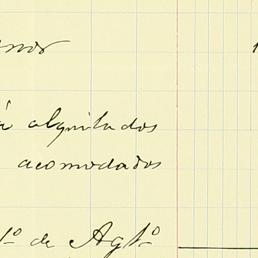 á alquilados
acomodados
1º de Agtº